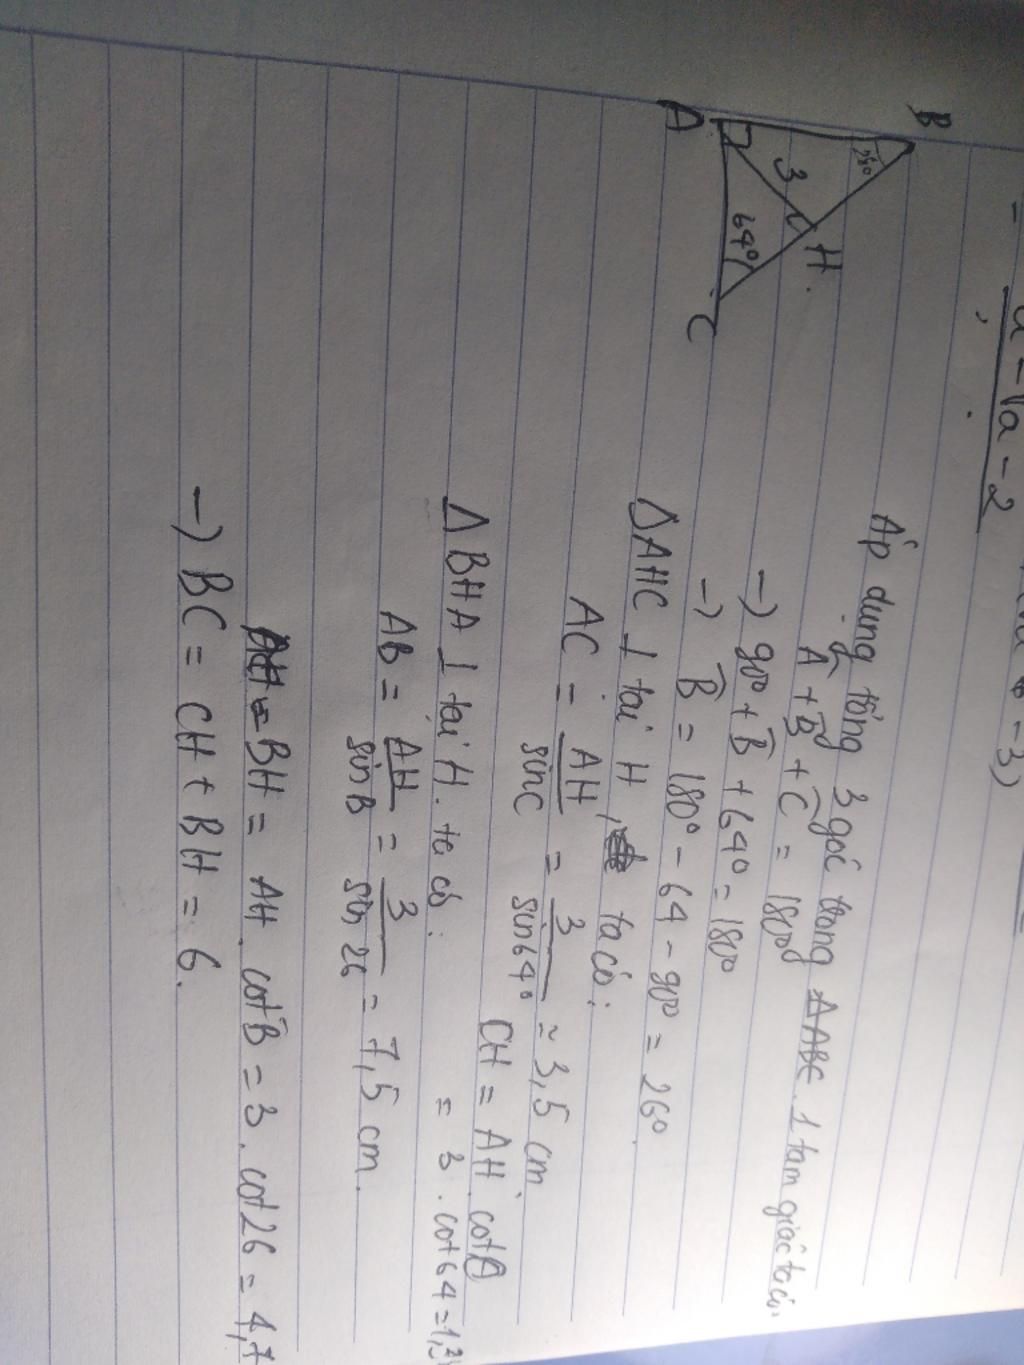 = a - √a - 2
- 3)
B
26°
A
3
H
64°
C
Áp dụng tổng 3 góc trong 1 tam giác ta có:
Â + B̂ + Ĉ = 180°
→ 90° + B̂ + 64° = 180°
→ B̂ = 180° - 64 - 90° = 26°.
Δ AHC ⊥ tại H, ta có:
AC = AH/sinC = 3/sin64° ≈ 3,5 cm
CH = AH. cot
= 3. cot64 = 1,3
Δ BHA ⊥ tại H. ta có:
AB = AH/sinB = 3/sin 26 = 7,5 cm.
BH = AH. cotB = 3. cot26 = 4,7
→ BC = CH + BH = 6.